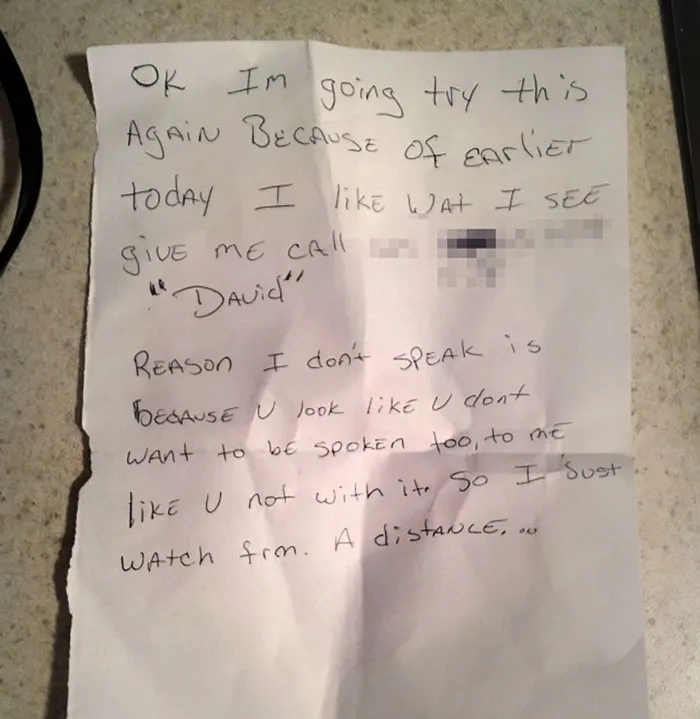 OK Im going try this
Again Because of earlier
today I like wat I see
give me call
"David"
Reason I don't speak is
because U look like U dont
want to be spoken too, to me
like U not with it. So I Just
watch frm. A distance...